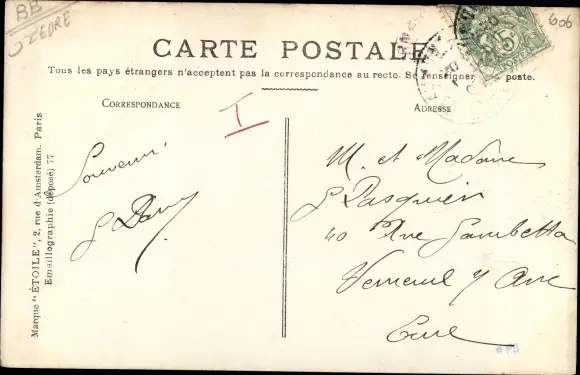 BB
606
CARTE POSTALE
Tous les pays étrangers n'acceptent pas la correspondance au recto. Se renseigner à la poste.
CORRESPONDANCE
ADRESSE
I
Souvenir
M. et Madame
Pasquier
40 Rue Gambetta
Verneuil s/ Avre
Eure
Marque "ÉTOILE", 2, rue d'Amsterdam. Paris
Emaillographie (déposé) 77